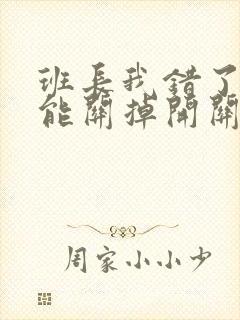 班长我错了
能關掉開關
周家小小少